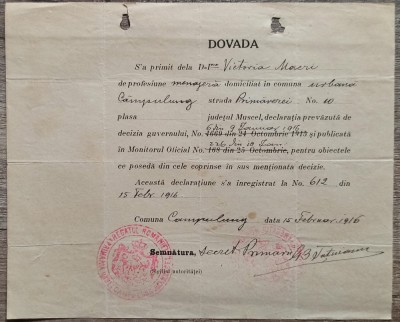 DOVADA
S'a primit dela D-l Victoria Macri
de profesiune menajeră domiciliat în comuna urbana
Câmpulung strada Primăverei No. 10
plasa județul Muscel, declarația prevăzută de
6 din 9 Ianuar 1916
decizia guvernului, No. 4669 din 24 Octombrie 1915 și publicată
226 din 10 Ian
în Monitorul Oficial No. 168 din 25 Octombrie, pentru obiectele
ce posedă din cele coprinse în sus menționata decizie.
Această declarațiune s'a înregistrat la No. 612 din
15 Febr. 1916
Comuna Campulung data 15 Februar 1916
Semnătura, Secret. Primăriei
(Sigiliul autorităței)